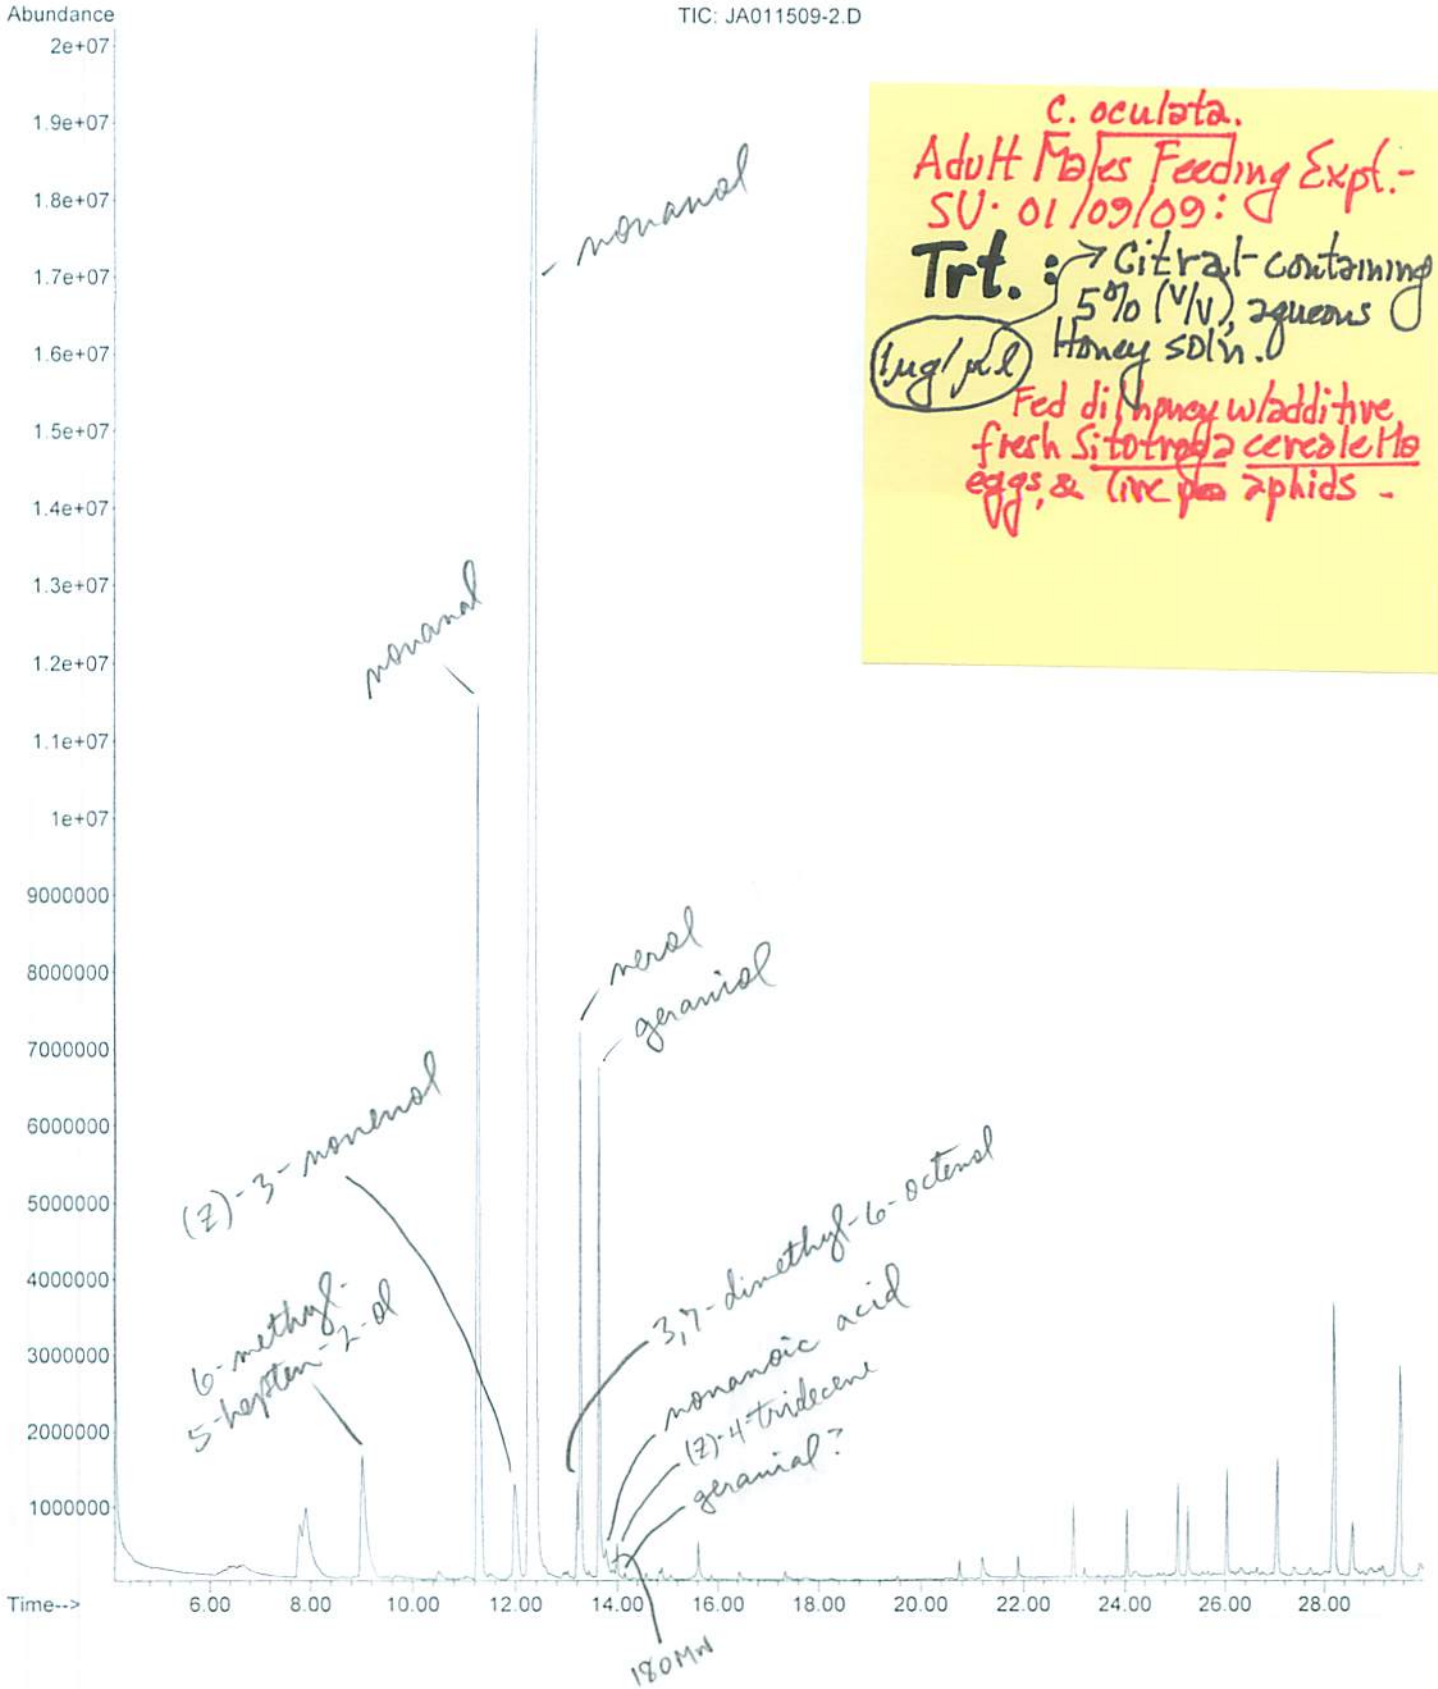 Abundance
TIC: JA011509-2.D
2e+07
1.9e+07
1.8e+07
1.7e+07
1.6e+07
1.5e+07
1.4e+07
1.3e+07
1.2e+07
1.1e+07
1e+07
9000000
8000000
7000000
6000000
5000000
4000000
3000000
2000000
1000000
Time-->
6.00 8.00 10.00 12.00 14.00 16.00 18.00 20.00 22.00 24.00 26.00 28.00
C. oculata.
Adult Males Feeding Expt.-
SU. 01/09/09:
Trt. : → Citral-containing
5% (v/v), aqueous
1µg/µl Honey soln.
Fed dil honey w/additive,
fresh Sitotroga cerealella
eggs, & live pea aphids -
nonanol
nonanal
nerol
geraniol
(Z)-3-nonenol
6-methyl-
5-hepten-2-ol
3,7-dimethyl-6-octenol
nonanoic acid
(Z)-4-tridecene
geranial?
180MW